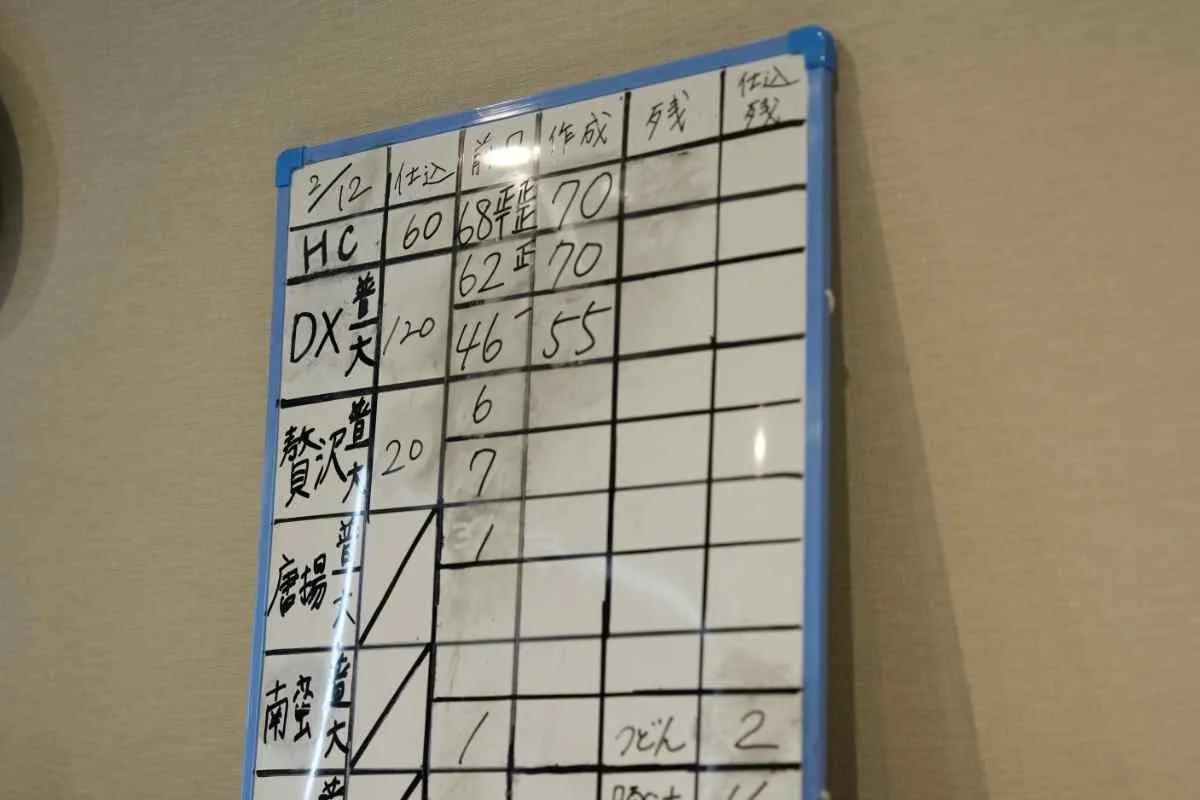 2/12 仕込 前日 作成 残 仕込残
HC 60 68 正正 70
DX 普 120 62 正 70
大 46 一 55
贅沢 普 20 6
大 7
唐揚 普 1
大
南蛮 普
大 1 うどん 2
普